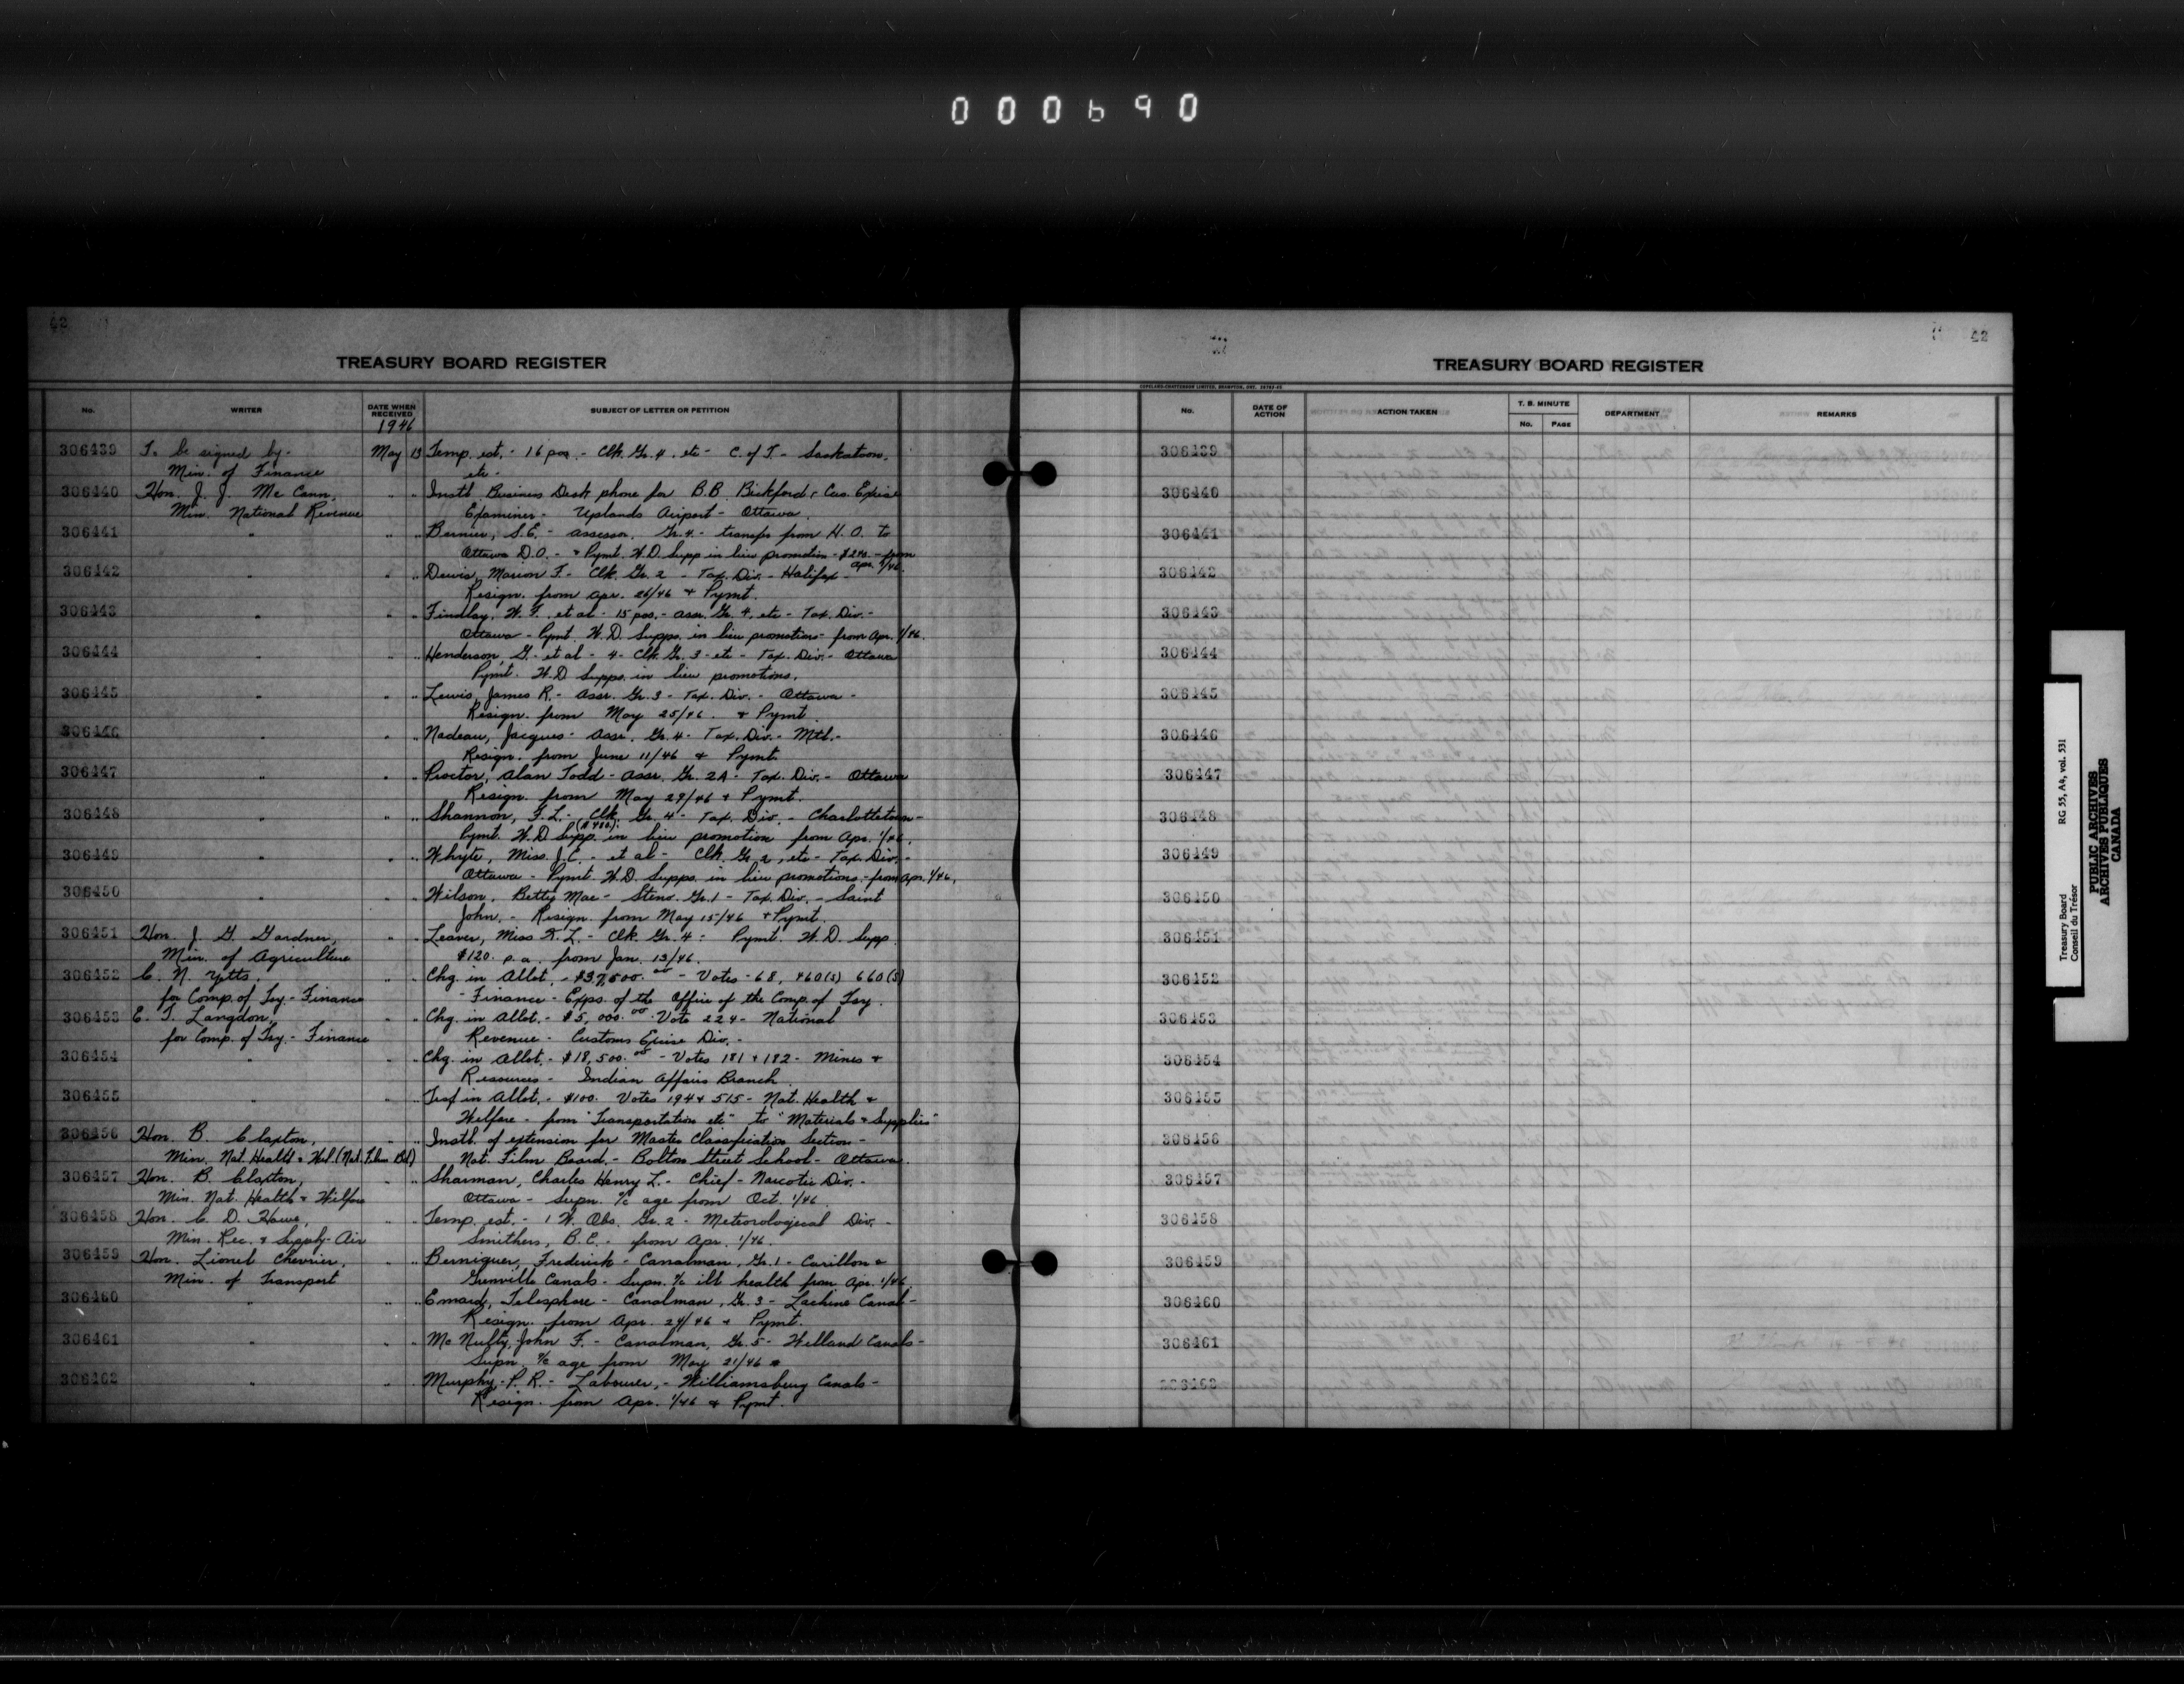 000690
42
TREASURY BOARD REGISTER
No. WRITER DATE WHEN RECEIVED SUBJECT OF LETTER OR PETITION
1946
306439 To be signed by- May 13 Temp. est. - 16 pos. - Clk. Gr. 4. etc - C. of T. - Saskatoon,
Min. of Finance etc -
306440 Hon. J. J. Mc Cann, " " Instl. Business Desk phone for B.B. Bickford, Cus. Excise
Min. National Revenue Examiner - Uplands Airport - Ottawa.
306441 " " " Bernier, S.E. - Assessor, Gr. 4. - transfer from H.O. to
Ottawa D.O. - & Pymt. W.D. Supp in lieu promotion - $240. - from Apr. 1/46.
306442 " " " Dewis, Marion F. - Clk. Gr. 2 - Tax. Div. - Halifax -
Resign. from Apr. 26/46 & Pymt.
306443 " " " Findlay, W. F. et al - 15 pos. - Assr. Gr. 4, etc - Tax Div. -
Ottawa - Pymt. W.D. Supps. in lieu promotions - from Apr. 1/46.
306444 " " " Henderson, G. - et al - 4 - Clk. Gr. 3 - etc - Tax. Div. - Ottawa
Pymt. W.D Supps. in lieu promotions.
306445 " " " Lewis, James R. - Assr. Gr. 3 - Tax. Div. - Ottawa -
Resign. from May 25/46. & Pymt.
306446 " " " Nadeau, Jacques - Assr. Gr. 4 - Tax. Div. - Mtl. -
Resign. from June 11/46 & Pymt.
306447 " " " Proctor, Alan Todd - Assr. Gr. 2A - Tax. Div. - Ottawa
Resign. from May 29/46 & Pymt.
306448 " " " Shannon, F.L. - Clk. Gr. 4 - Tax. Div. - Charlottetown -
Pymt. W.D Supp. in lieu promotion from Apr. 1/46.
306449 " " " Whyte, Miss. J.C. - et al - Clk. Gr. 2, etc - Tax Div. -
Ottawa - Pymt W.D. Supps. in lieu promotions - from Apr. 1/46,
306450 " " " Wilson, Betty Mae - Steno. Gr. 1 - Tax. Div. - Saint
John. - Resign. from May 15/46 & Pymt.
306451 Hon. J. G. Gardner, " " Leaver, Miss - Clk. Gr. 4 : Pymt. W.D. Supp.
Min. of Agriculture $120. p.a. from Jan. 13/46.
306452 C. N. Yetts, " " Chg. in Allot. - $37,500.00 - Votes - 68, 460(s) 660(s)
for Comp. of Tsy. - Finance - Finance - Exps. of the Office of the Comp. of Tsy.
306453 E. T. Langdon, " " Chg. in Allot. - $5,000.00 Vote 224 - National
for Comp. of Tsy. - Finance Revenue - Customs Excise Div. -
306454 " " " Chg. in Allot. - $18,500.00 - Votes 181 & 182 - Mines &
Resources - Indian Affairs Branch.
306455 " " " Trsf in Allot. - $100. Votes 194 & 515 - Nat. Health &
Welfare - from "Transportation etc" to "Materials & Supplies"
306456 Hon. B. Claxton, " " Instl. of extension for Master Classification Section -
Min. Nat. Health & Wel (Nat. Film Bd) Nat. Film Board. - Bolton Street School - Ottawa.
306457 Hon. B. Claxton, " " Sharman, Charles Henry L. - Chief - Narcotic Div. -
Min. Nat. Health & Welfare Ottawa - Supn. a/c age from Oct. 1/46
306458 Hon. C. D. Howe, " " Temp. est. - 1 W. Obs. Gr. 2 - Meteorological Div. -
Min. Rec. & Supply - Air Smithers, B.C. - from Apr. 1/46.
306459 Hon. Lionel Chevrier, " " Berniquer, Frederick - Canalman, Gr. 1 - Carillon &
Min. of Transport Grenville Canals - Supn. a/c ill health from Apr. 1/46.
306460 " " " Emard, Telesphore - Canalman, Gr. 3 - Lachine Canal -
Resign. from Apr. 24/46 & Pymt.
306461 " " " Mc Nulty, John F. - Canalman, Gr. 5 - Welland Canals -
Supn. a/c age from May 21/46
306462 " " " Murphy, P. R. - Labourer, - Williamsburg Canals -
Resign. from Apr. 1/46 & Pymt.
42
TREASURY BOARD REGISTER
COPELAND-CHATTERSON LIMITED, BRAMPTON, ONT.
No. DATE OF ACTION ACTION TAKEN T. B. MINUTE No. PAGE DEPARTMENT REMARKS
306439
306440
306441
306442
306443
306444
306445
306446
306447
306448
306449
306450
306451
306452
306453
306454
306455
306456
306457
306458
306459
306460
306461
306462
Treasury Board RG 55, A4, vol. 531
Conseil du Trésor
PUBLIC ARCHIVES
ARCHIVES PUBLIQUES
CANADA